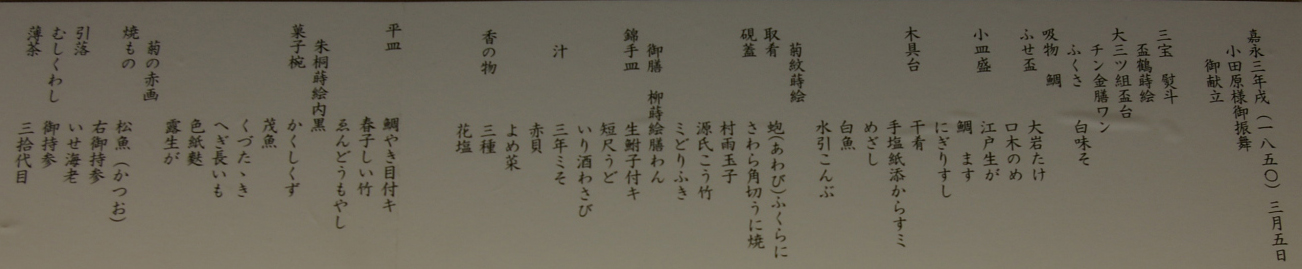 嘉永三年戌（一八五〇）三月五日
小田原様御振舞
御献立
三宝　熨斗
盃鶴蒔絵
大三ツ組盃台
チン金膳ワン
ふくさ　白味そ
吸物　鯛　大岩たけ
ふせ盃　口木のめ
江戸生が
小皿盛　鯛　ます
にぎりすし
木具台　干肴
手塩紙添からすミ
めざし
白魚
水引こんぶ
菊紋蒔絵
取肴　蚫（あわび）ふくらに
硯蓋　さわら角切うに焼
村雨玉子
源氏こう竹
みどりふき
御膳　柳蒔絵膳わん
錦手皿　生鮒子付キ
短尺うど
いり酒わさび
汁　三年ミそ
赤貝
よめ菜
香の物　三種
花塩
平皿　鯛やき目付キ
春子しい竹
ゑんどうもやし
朱桐蒔絵内黒
菓子椀　かくしくず
茂魚
くづたゝき
へぎ長いも
色紙麩
露生が
菊の赤画
焼もの　松魚（かつお）
右御持参
引落　いせ海老
むしくわし　御持参
薄茶　三拾代目